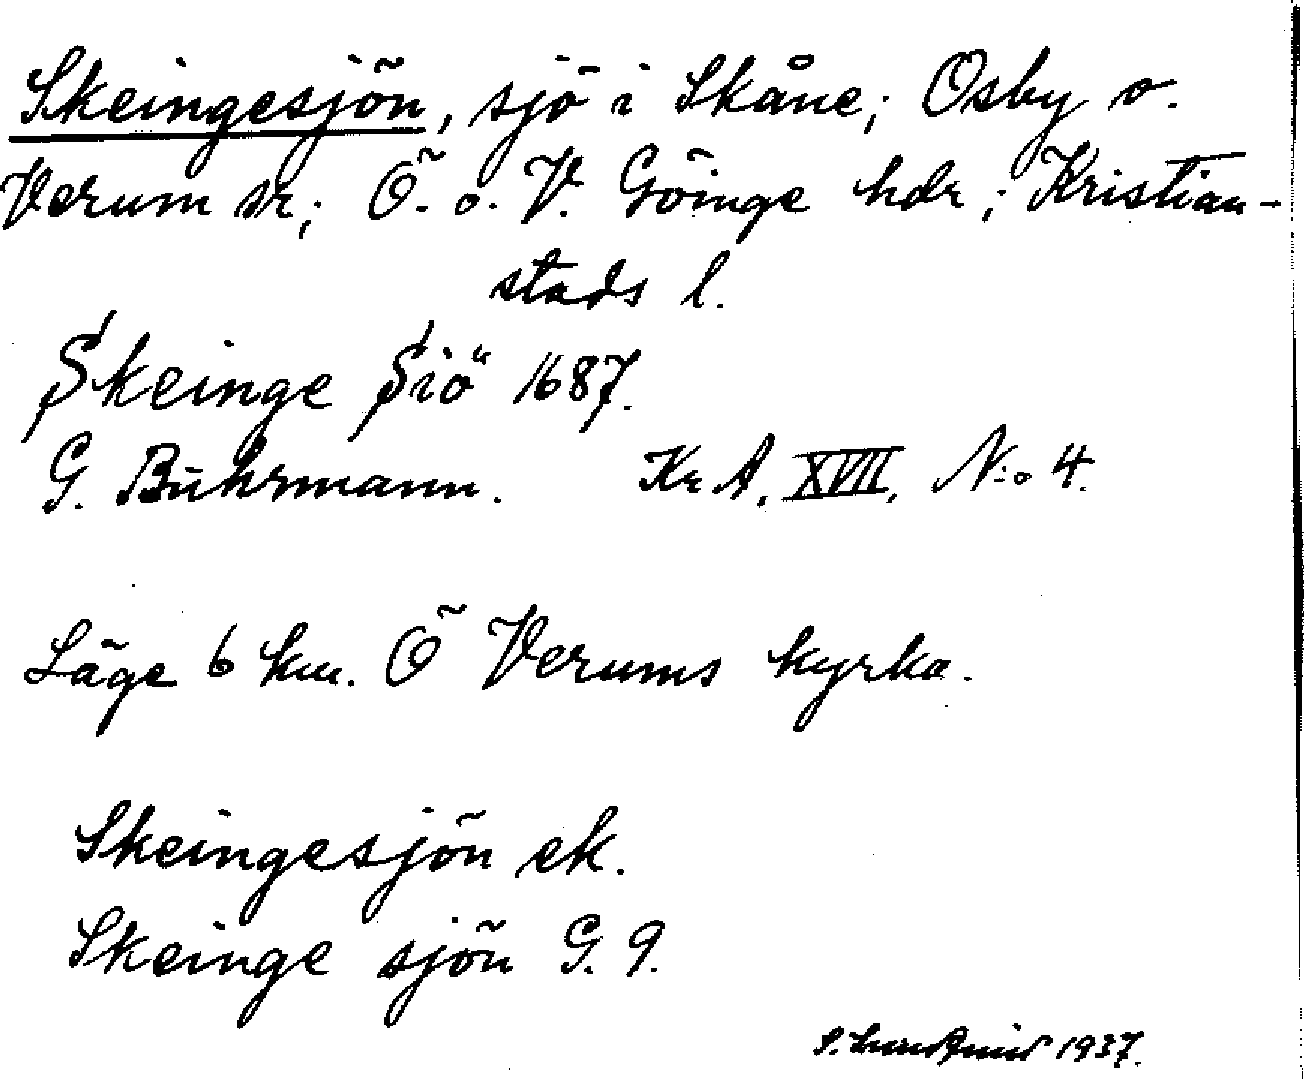 Skeingesjön, sjö i Skåne; Osby o.
Verum sr; Ö. o. V. Göinge hdr; Kristian-
stads l.
Skeinge Siö 1687.
G. Buhrmann. KrA. XVII, N:o 4.
Läge 6 km. Ö Verums kyrka.
Skeingesjön ek.
Skeinge sjön G. 9.
1937.